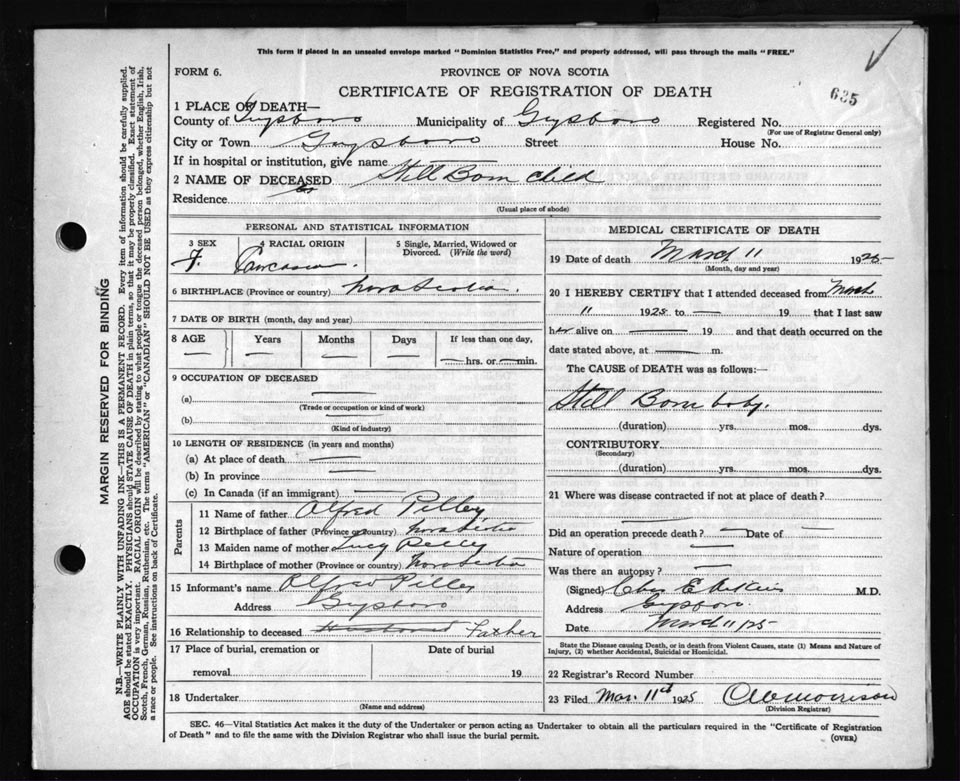 This form if placed in an unsealed envelope marked "Dominion Statistics Free," and properly addressed, will pass through the mails "FREE."
FORM 6.
PROVINCE OF NOVA SCOTIA
CERTIFICATE OF REGISTRATION OF DEATH
635
1 PLACE OF DEATH—
County of Guysboro Municipality of Guysboro Registered No.
(For use of Registrar General only)
City or Town Guysboro Street House No.
If in hospital or institution, give name
2 NAME OF DECEASED Still Born Child
Residence
(Usual place of abode)
MARGIN RESERVED FOR BINDING
N.B.—WRITE PLAINLY WITH UNFADING INK—THIS IS A PERMANENT RECORD. Every item of information should be carefully supplied.
AGE should be stated EXACTLY. PHYSICIANS should STATE CAUSE OF DEATH in plain terms, so that it may be properly classified. Exact statement of
OCCUPATION is very important. RACIAL ORIGIN will be described by stating to what people or tongue the deceased person belonged, whether English, Irish,
Scotch, French, German, Russian, Ruthenian, etc. The terms "AMERICAN" or "CANADIAN" SHOULD NOT BE USED as they express citizenship but not
a race or people. See instructions on back of Certificate.
PERSONAL AND STATISTICAL INFORMATION
3 SEX
F.
4 RACIAL ORIGIN
Caucasian.
5 Single, Married, Widowed or
Divorced. (Write the word)
6 BIRTHPLACE (Province or country) Nova Scotia.
7 DATE OF BIRTH (month, day and year)
8 AGE Years Months Days If less than one day,
hrs. or min.
9 OCCUPATION OF DECEASED
(a)
(Trade or occupation or kind of work)
(b)
(Kind of industry)
10 LENGTH OF RESIDENCE (in years and months)
(a) At place of death
(b) In province
(c) In Canada (if an immigrant)
Parents
11 Name of father Alfred Pelley
12 Birthplace of father (Province or country) Nova Scotia
13 Maiden name of mother Lucy Pelley
14 Birthplace of mother (Province or country) Nova Scotia
15 Informant's name Alfred Pelley
Address Guysboro
16 Relationship to deceased Husband Father
17 Place of burial, cremation or Date of burial
removal 19
18 Undertaker
(Name and address)
MEDICAL CERTIFICATE OF DEATH
19 Date of death March 11 1925
(Month, day and year)
20 I HEREBY CERTIFY that I attended deceased from March
11 1925 to — 19 that I last saw
her alive on 19 and that death occurred on the
date stated above, at m.
The CAUSE of DEATH was as follows:—
Still Born baby.
(duration) yrs. mos. dys.
CONTRIBUTORY
(Secondary)
(duration) yrs. mos. dys.
21 Where was disease contracted if not at place of death?
Did an operation precede death? Date of
Nature of operation
Was there an autopsy?
(Signed) E M.D.
Address Guysboro.
Date March 11/25
State the Disease causing Death, or in death from Violent Causes, state (1) Means and Nature of
Injury, (2) whether Accidental, Suicidal or Homicidal.
22 Registrar's Record Number
23 Filed Mar. 11th 1925 Morrison
(Division Registrar)
SEC. 46—Vital Statistics Act makes it the duty of the Undertaker or person acting as Undertaker to obtain all the particulars required in the "Certificate of Registration
of Death" and to file the same with the Division Registrar who shall issue the burial permit.
(OVER)